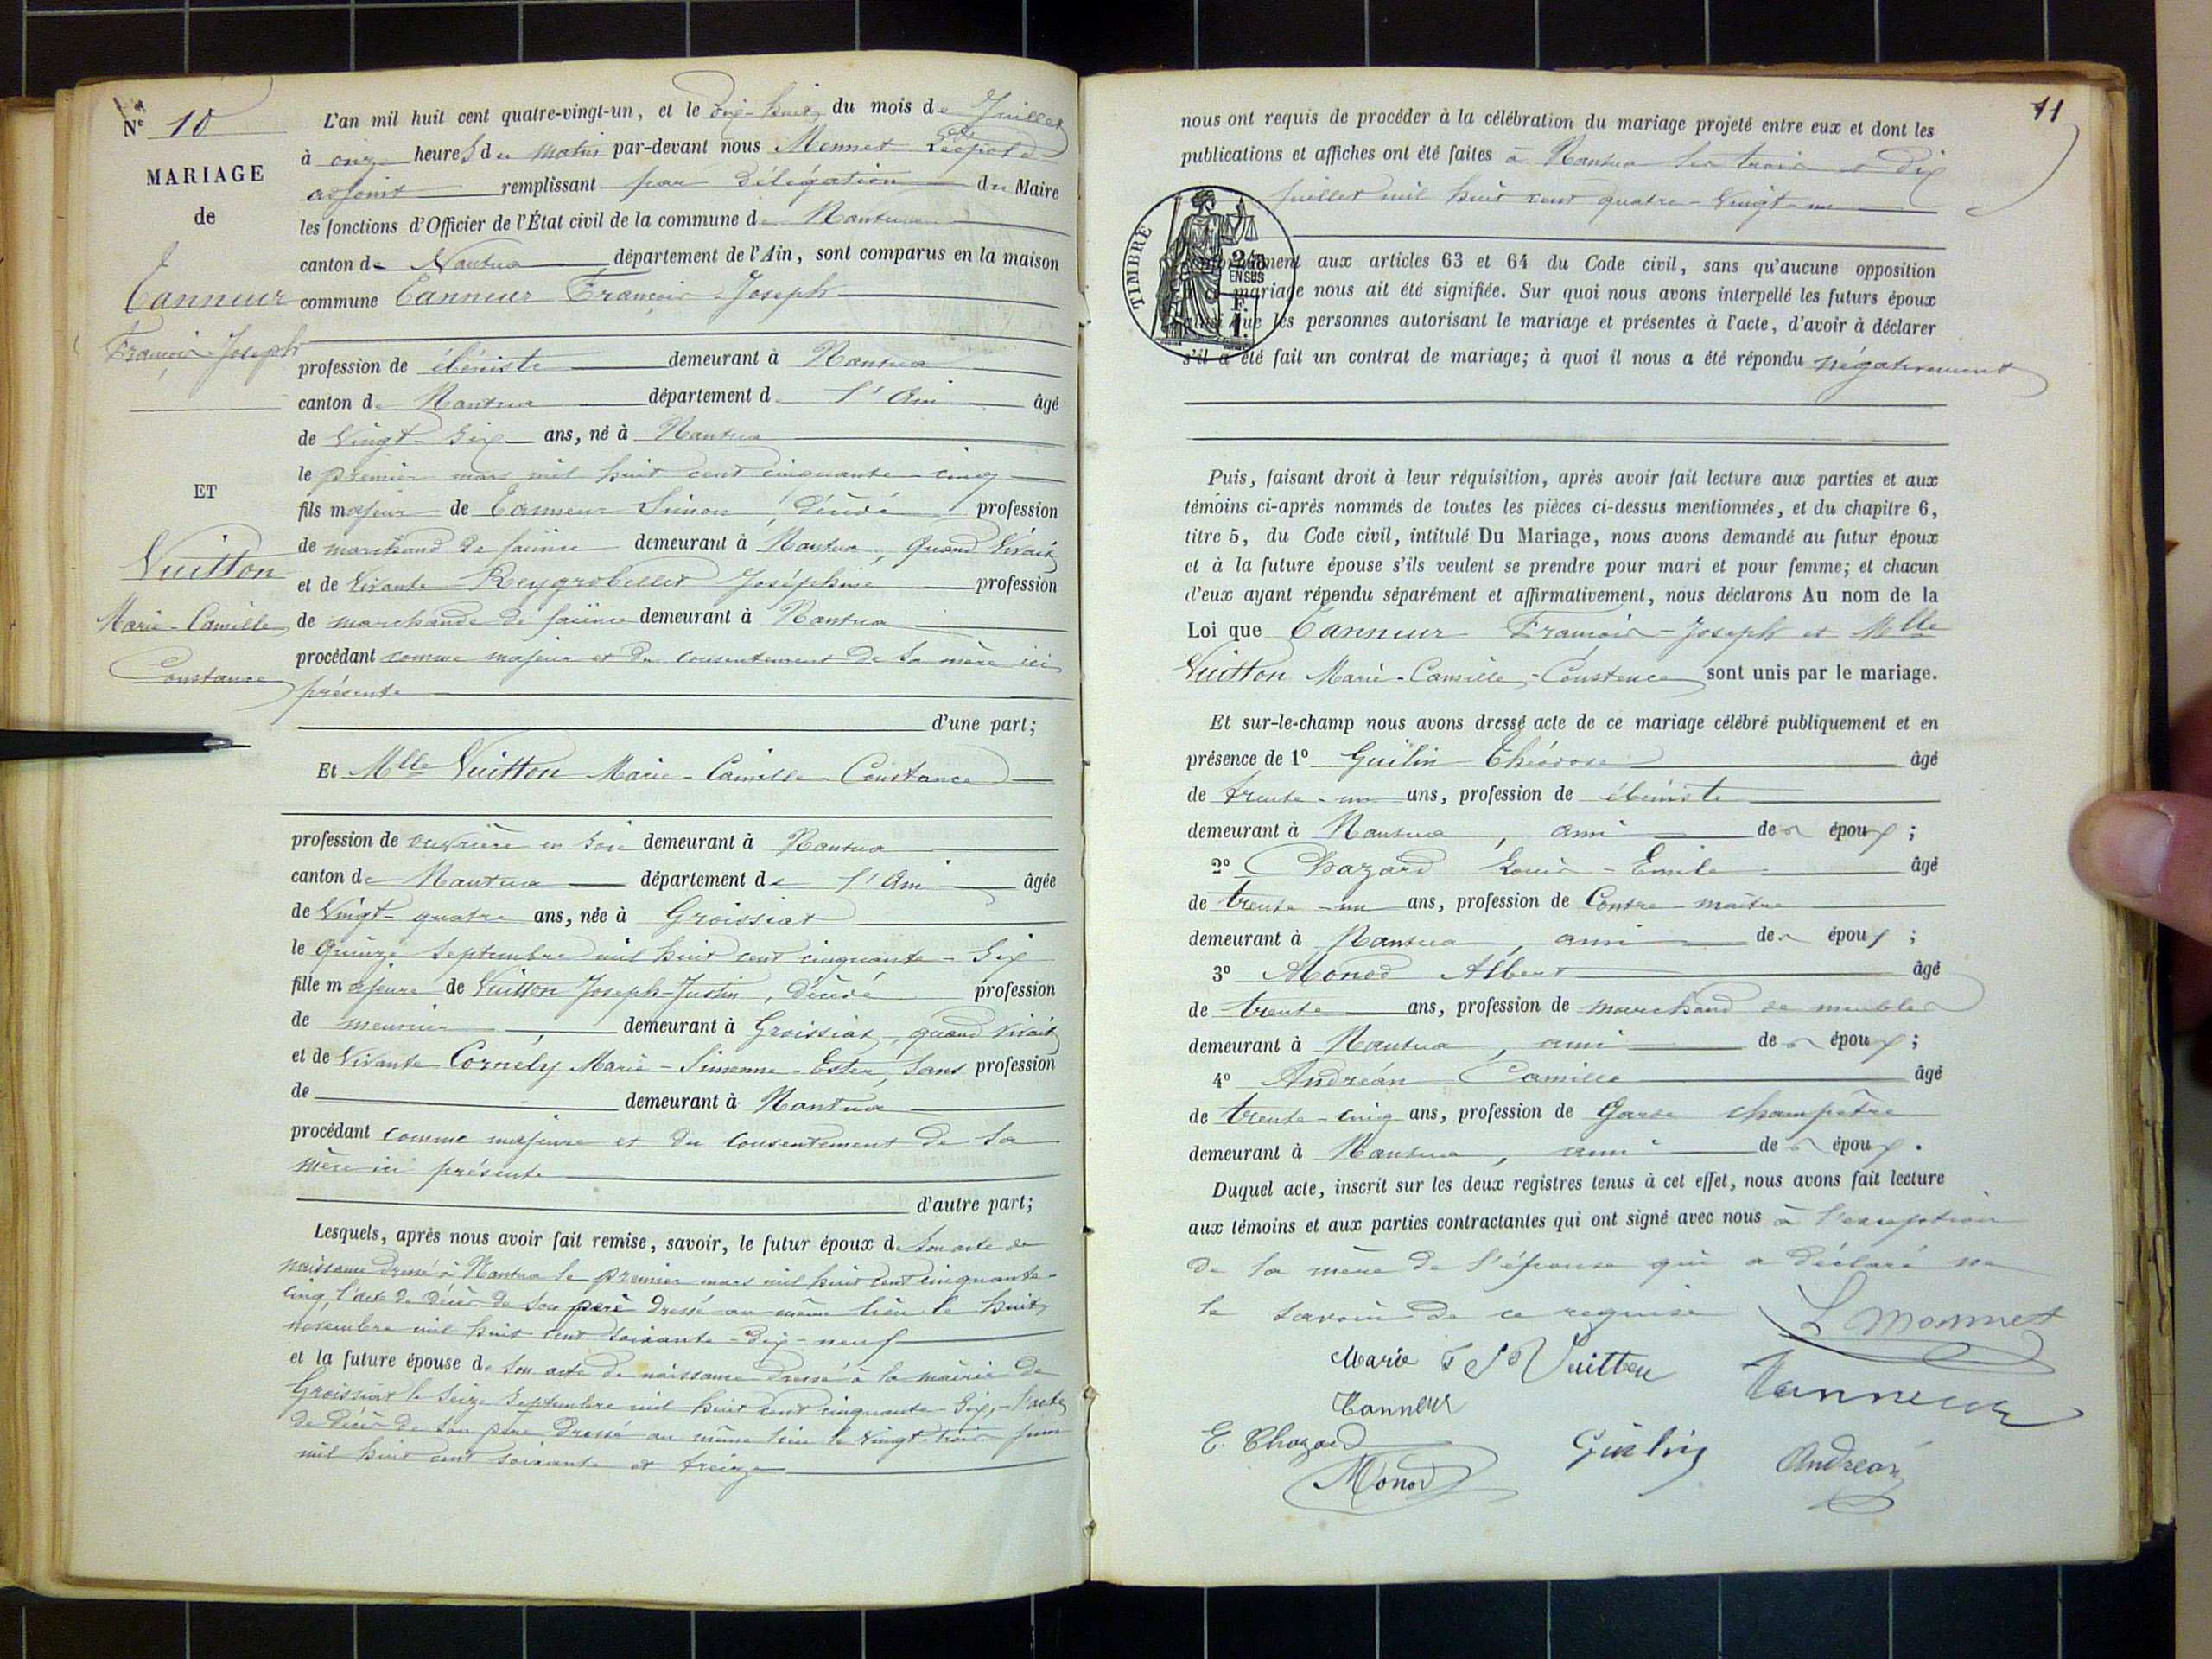 N° 10
MARIAGE
de
Tanneur
François-Joseph
ET
Vuitton
Marie-Camille
Constance
L'an mil huit cent quatre-vingt-un, et le dix-huit du mois de Juillet
à onze heures du matin par-devant nous Monnet Léopold
adjoint remplissant par délégation du Maire
les fonctions d'Officier de l'État civil de la commune de Nantua
canton de Nantua département de l'Ain, sont comparus en la maison
commune Tanneur François-Joseph
profession de ébéniste demeurant à Nantua
canton de Nantua département de l'Ain âgé
de vingt-six ans, né à Nantua
le premier mars mil huit cent cinquante-cinq
fils majeur de Tanneur Simon, décédé profession
de marchand de faïence demeurant à Nantua, quand vivait
et de vivante Reygrobellet Joséphine profession
de marchande de faïence demeurant à Nantua
procédant comme majeur et du consentement de sa mère ici
présente
d'une part;
Et Mlle Vuitton Marie-Camille-Constance
profession de ouvrière en soie demeurant à Nantua
canton de Nantua département de l'Ain âgée
de vingt-quatre ans, née à Groissiat
le quinze septembre mil huit cent cinquante-six
fille majeure de Vuitton Joseph-Justin, décédé profession
de meunier demeurant à Groissiat, quand vivait
et de vivante Cornély Marie-Simonne-Ester, sans profession
de demeurant à Nantua
procédant comme majeure et du consentement de sa
mère ici présente
d'autre part;
Lesquels, après nous avoir fait remise, savoir, le futur époux de son acte de
naissance dressé à Nantua le premier mars mil huit cent cinquante-
cinq, l'acte de décès de son père dressé au même lieu le huit
novembre mil huit cent soixante-dix-neuf
et la future épouse de son acte de naissance dressé à la mairie de
Groissiat le seize septembre mil huit cent cinquante-six, l'acte
de décès de son père dressé au même lieu le vingt-trois juin
mil huit cent soixante et treize
11
nous ont requis de procéder à la célébration du mariage projeté entre eux et dont les
publications et affiches ont été faites à Nantua les trois et dix
juillet mil huit cent quatre-vingt-un
TIMBRE
2/10
EN SUS
F.
1
conformément aux articles 63 et 64 du Code civil, sans qu'aucune opposition
mariage nous ait été signifiée. Sur quoi nous avons interpellé les futurs époux
ainsi que les personnes autorisant le mariage et présentes à l'acte, d'avoir à déclarer
s'il a été fait un contrat de mariage; à quoi il nous a été répondu négativement
Puis, faisant droit à leur réquisition, après avoir fait lecture aux parties et aux
témoins ci-après nommés de toutes les pièces ci-dessus mentionnées, et du chapitre 6,
titre 5, du Code civil, intitulé Du Mariage, nous avons demandé au futur époux
et à la future épouse s'ils veulent se prendre pour mari et pour femme; et chacun
d'eux ayant répondu séparément et affirmativement, nous déclarons Au nom de la
Loi que Tanneur François-Joseph et Mlle
Vuitton Marie-Camille-Constence sont unis par le mariage.
Et sur-le-champ nous avons dressé acte de ce mariage célébré publiquement et en
présence de 1° Guilin Théodose âgé
de trente-un ans, profession de ébéniste
demeurant à Nantua, ami des époux;
2° Chazard Louis-Emile âgé
de trente-un ans, profession de Contre-maître
demeurant à Nantua, ami des époux;
3° Monod Albert âgé
de trente ans, profession de marchand de meubles
demeurant à Nantua, ami des époux;
4° Andréan Camille âgé
de trente-cinq ans, profession de Garde champêtre
demeurant à Nantua, ami des époux.
Duquel acte, inscrit sur les deux registres tenus à cet effet, nous avons fait lecture
aux témoins et aux parties contractantes qui ont signé avec nous à l'exception
de la mère de l'épouse qui a déclaré ne
le savoir de ce requise
L Monnet
Marie Vuitton
Tanneur
Tanneur
E. Chazard
Guilin
Andréan
Monod